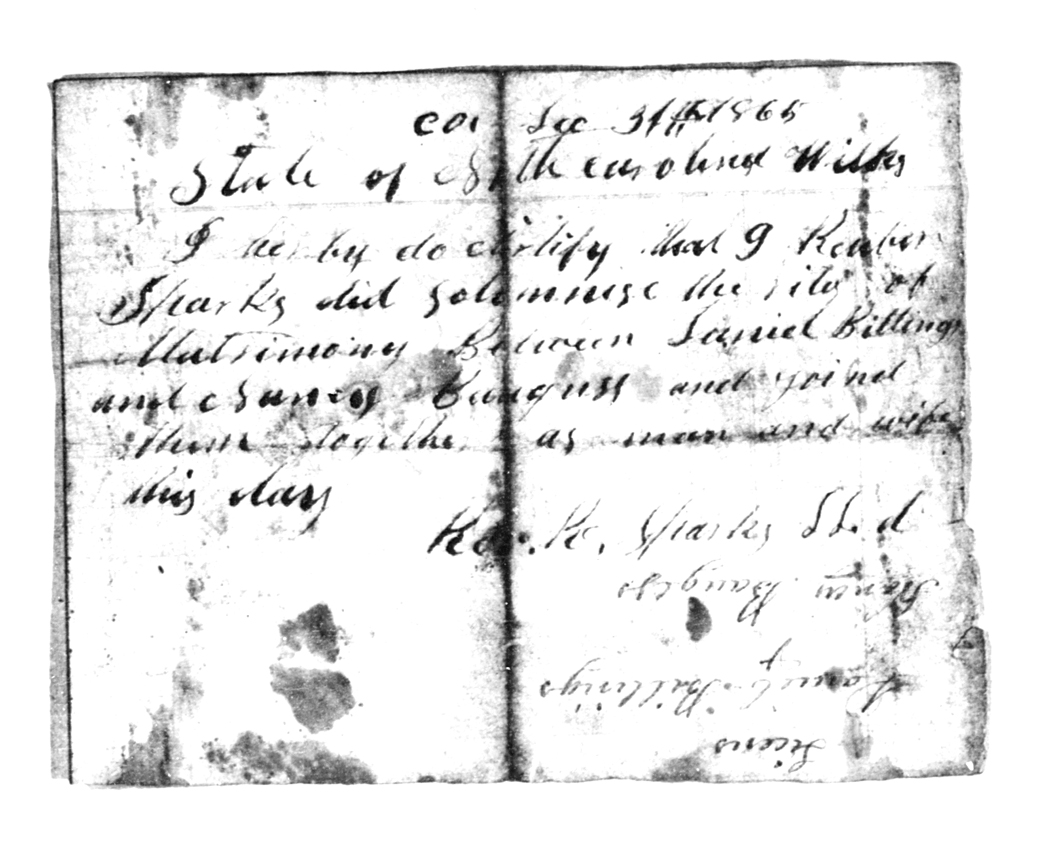 Co Dec 31th 1865
State of North Carolina Wilks
I herby do certify that I Reuben
Sparks did solemnise the rits of
Matrimony Between Daniel Billings
and Bauguss and joind
them together as man and wife
this day
Rev. R. Sparks
Bauguss
Daniel Billings